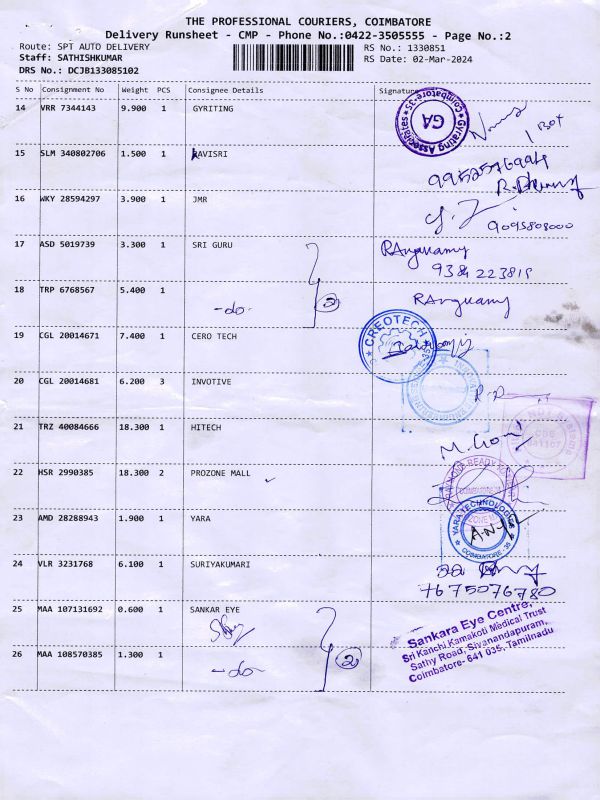 THE PROFESSIONAL COURIERS, COIMBATORE
Delivery Runsheet - CMP - Phone No.:0422-3505555 - Page No.:2
Route: SPT AUTO DELIVERY RS No.: 1330851
Staff: SATHISHKUMAR RS Date: 02-Mar-2024
DRS No.: DCJB133085102
S No Consignment No Weight PCS Consignee Details Signature
14 VRR 7344143 9.900 1 GYRITING
Gyrating Associates Coimbatore-35 GA
1 Box
15 SLM 340802706 1.500 1 KAVISRI
16 WKY 28594297 3.900 1 JMR
9095808000
17 ASD 5019739 3.300 1 SRI GURU
9384223815
18 TRP 6768567 5.400 1 -do- 2
19 CGL 20014671 7.400 1 CERO TECH
CREOTECH
20 CGL 20014681 6.200 3 INVOTIVE
21 TRZ 40084666 18.300 1 HITECH
22 HSR 2990385 18.300 2 PROZONE MALL
23 AMD 28288943 1.900 1 YARA
YARA TECHNOLOGIES COIMBATORE-35
24 VLR 3231768 6.100 1 SURIYAKUMARI
25 MAA 107131692 0.600 1 SANKAR EYE
Sankara Eye Centre,
Sri Kanchi Kamakoti Medical Trust
Sathy Road, Sivanandapuram,
Coimbatore- 641 035, Tamilnadu
26 MAA 108570385 1.300 1 -do- 2